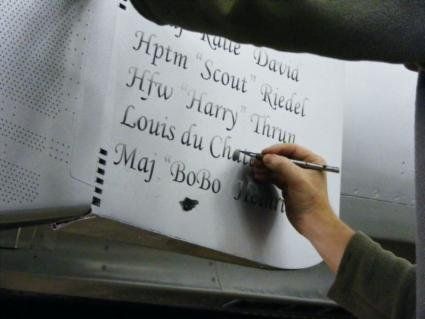 Katie David
Hptm "Scout" Riedel
Hfw "Harry" Thrun
Louis du
Maj "BoBo